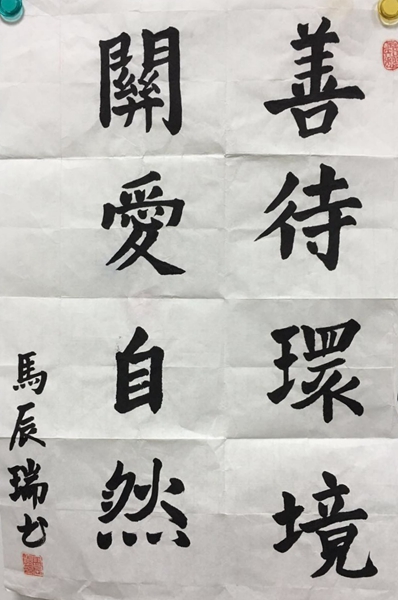 善待環境
關愛自然
馬辰瑞书